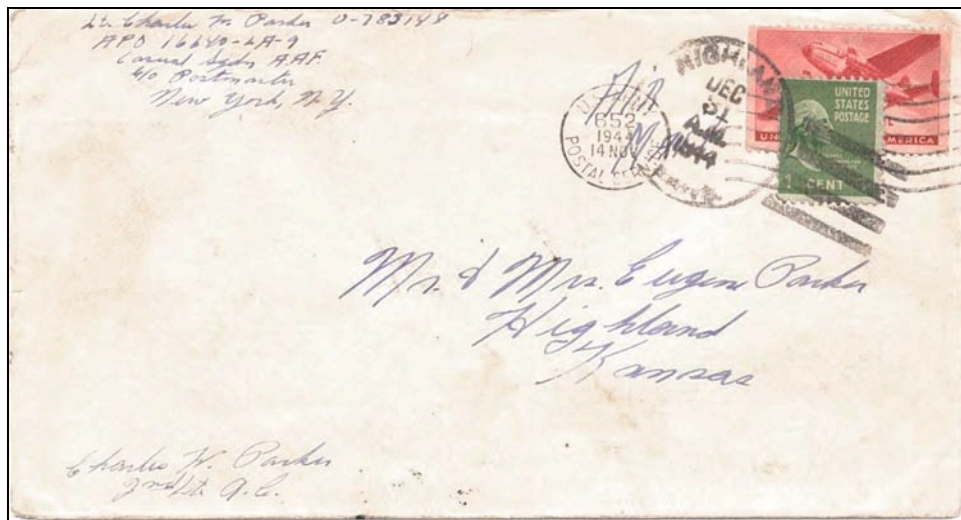 Lt. Charles W. Parker O-783148
APO 16640-LA-9
Casual Sqdn A.A.F.
c/o Postmaster
New York, N.Y.
Air
Mail
U.S. ARMY
652
1944
14 NOV
POSTAL SERVICE
HIGHLAND
DEC
31
A.M.
1944
UNITED
STATES
POSTAGE
1 CENT
AMERICA
Mr. & Mrs. Eugene Parker
Highland
Kansas
Charles W. Parker
2nd Lt. A.C.